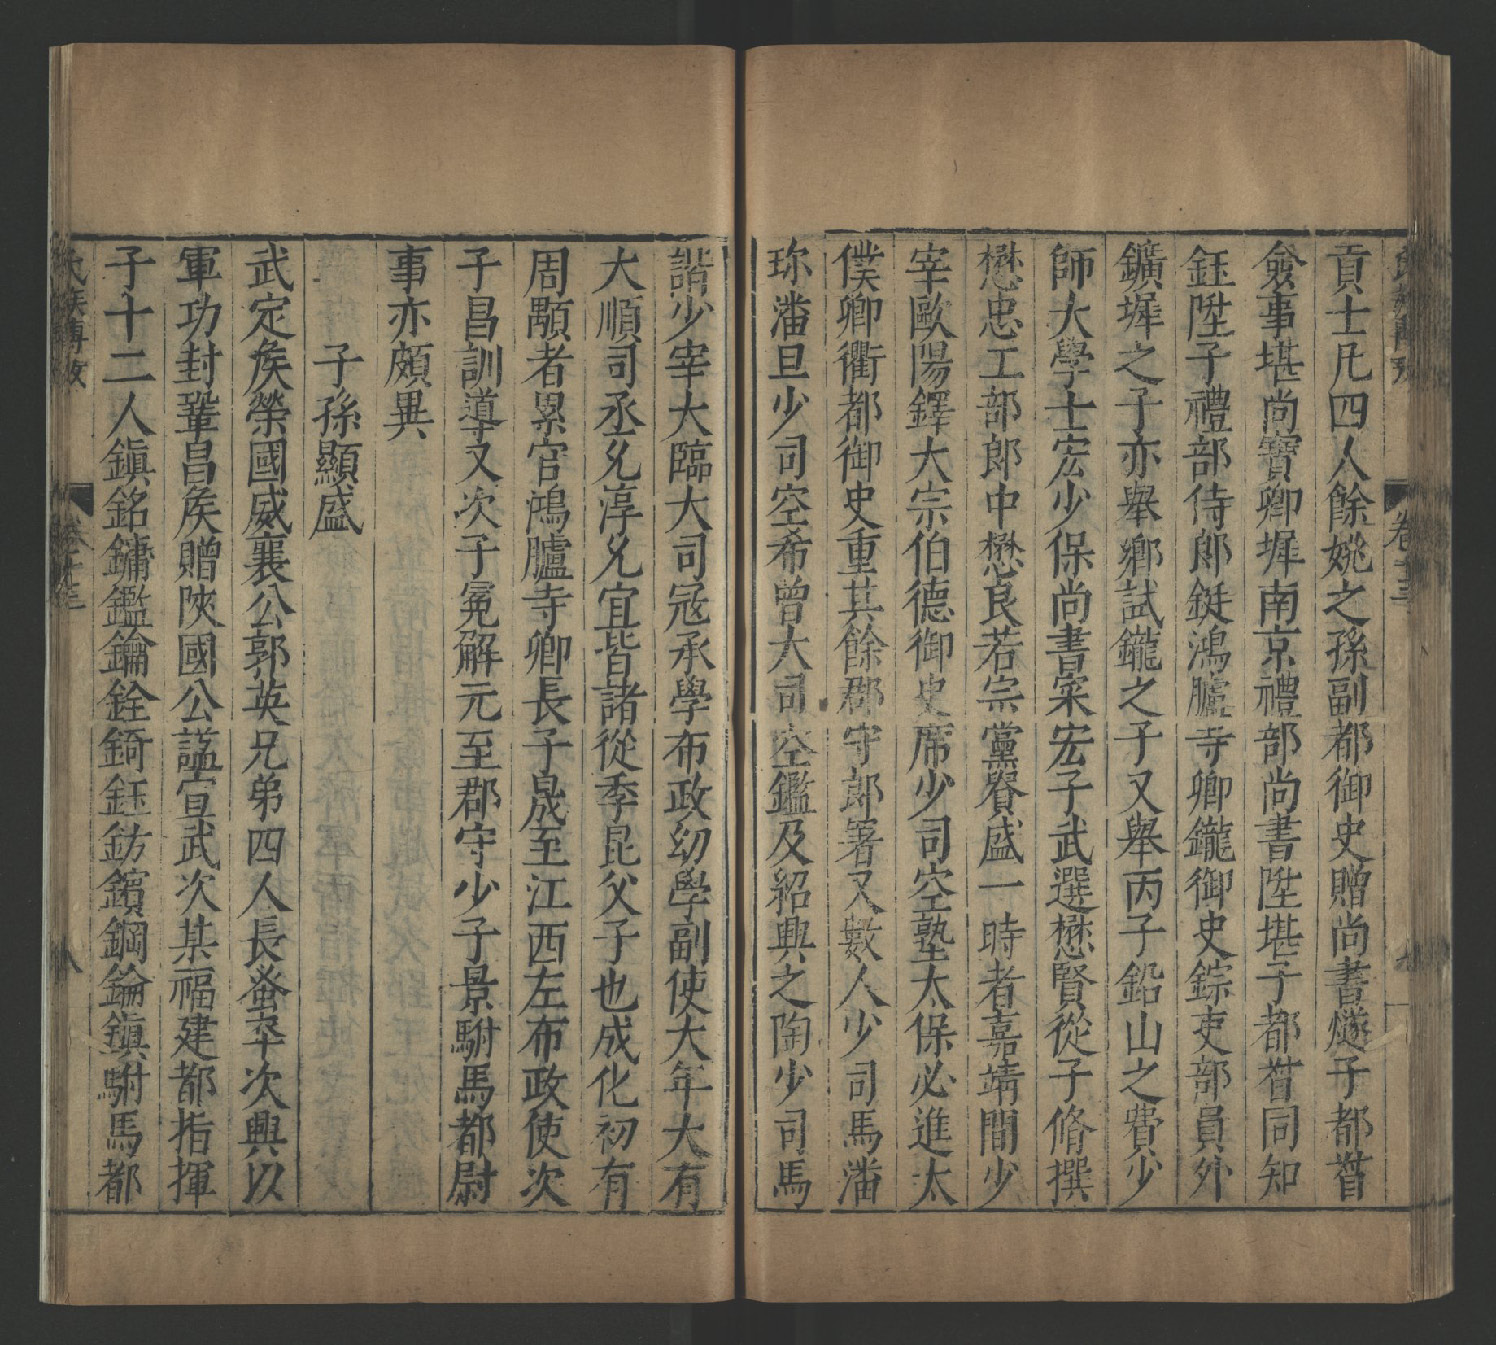 卷十三
貢士凡四人餘姚之孫副都御史贈尚書燧子都督
僉事堪尚寶卿墀南京禮部尚書陞堪子都督同知
鈺陞子禮部侍郎鋌鴻臚寺卿鑨御史錝吏部員外
鑛墀之子亦舉鄉試鑨之子又舉丙子鉛山之費少
師大學士宏少保尚書寀宏子武選懋賢從子脩撰
懋忠工部郎中懋良若宗黨賢盛一時者嘉靖間少
宰歐陽鐸大宗伯德御史席少司空塾太保必進太
僕卿衢都御史重其餘郡守郎署又數人少司馬潘
珍潘旦少司空希曾大司空鑑及紹興之陶少司馬
諧少宰大臨大司冦承學布政幼學副使大年大有
大順司丞允淳允宜皆諸從季昆父子也成化初有
周顒者累官鴻臚寺卿長子晟至江西左布政使次
子昌訓導又次子冕解元至郡守少子景駙馬都尉
事亦頗異
子孫顯盛
武定矦榮國威襄公郭英兄弟四人長蚤卒次興以
軍功封鞏昌矦贈陝國公謚宣武次某福建都指揮
子十二人鎮銘鏞鑑鑰銓錡鈺鈁鑌鋼錀鎭駙馬都
卷十三
八